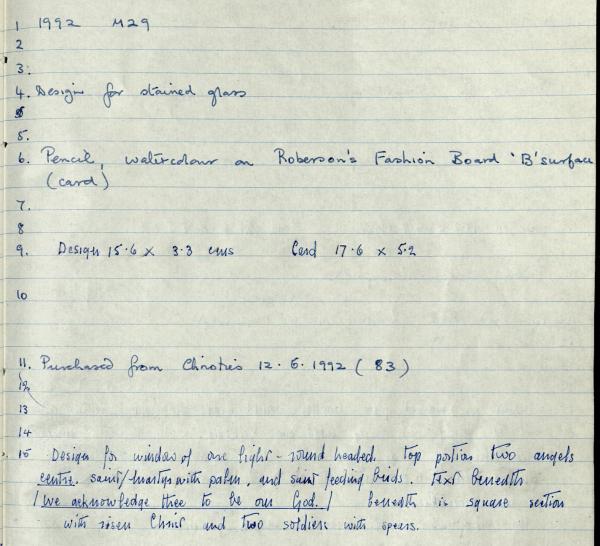 1 1992 M29
2
3.
4. Design for stained glass
5.
6. Pencil, watercolour on Roberson's Fashion Board 'B' surface
(card)
7.
8
9. Design 15.6 x 3.3 cms Card 17.6 x 5.2
10
11. Purchased from Christies 12.6.1992 (83)
12
13
14
15 Design for window of one light - round headed. Top portion two angels
centre. saint/martyr with palm, and saint feeding birds. Text beneath
/we acknowledge thee to be our God./ beneath is square section
with risen Christ and two soldiers with spears.